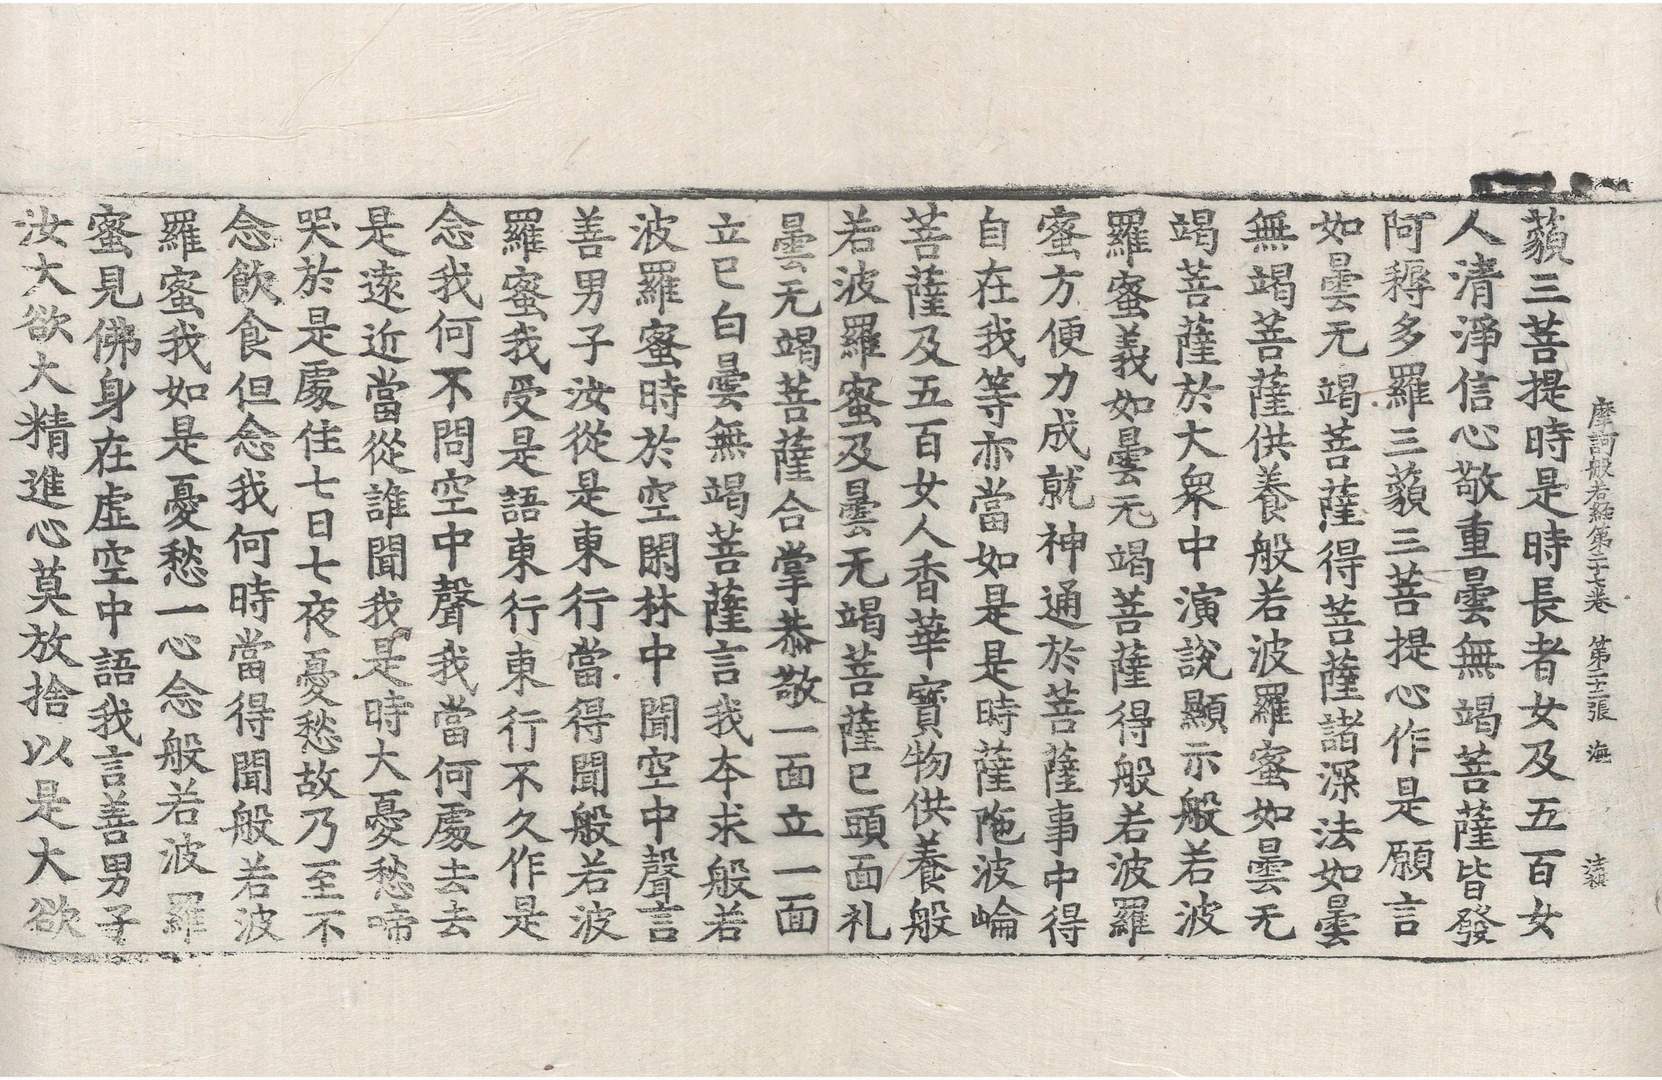 摩訶般若経第二十七巻　第二十五張　海　　法祺
藐三菩提時是時長者女及五百女
人清淨信心敬重曇無竭菩薩皆發
阿耨多羅三藐三菩提心作是願言
如曇无竭菩薩得菩薩諸深法如曇
無竭菩薩供養般若波羅蜜如曇无
竭菩薩於大衆中演說顯示般若波
羅蜜義如曇无竭菩薩得般若波羅
蜜方便力成就神通於菩薩事中得
自在我等亦當如是是時薩陁波崘
菩薩及五百女人香華寳物供養般
若波羅蜜及曇无竭菩薩已頭面礼
曇无竭菩薩合掌恭敬一面立一面
立已白曇無竭菩薩言我本求般若
波羅蜜時於空閑林中聞空中聲言
善男子汝從是東行當得聞般若波
羅蜜我受是語東行東行不久作是
念我何不問空中聲我當何處去去
是遠近當從誰聞我是時大憂愁啼
哭於是處住七日七夜憂愁故乃至不
念飲食但念我何時當得聞般若波
羅蜜我如是憂愁一心念般若波羅
蜜見佛身在虛空中語我言善男子
汝大欲大精進心莫放捨以是大欲